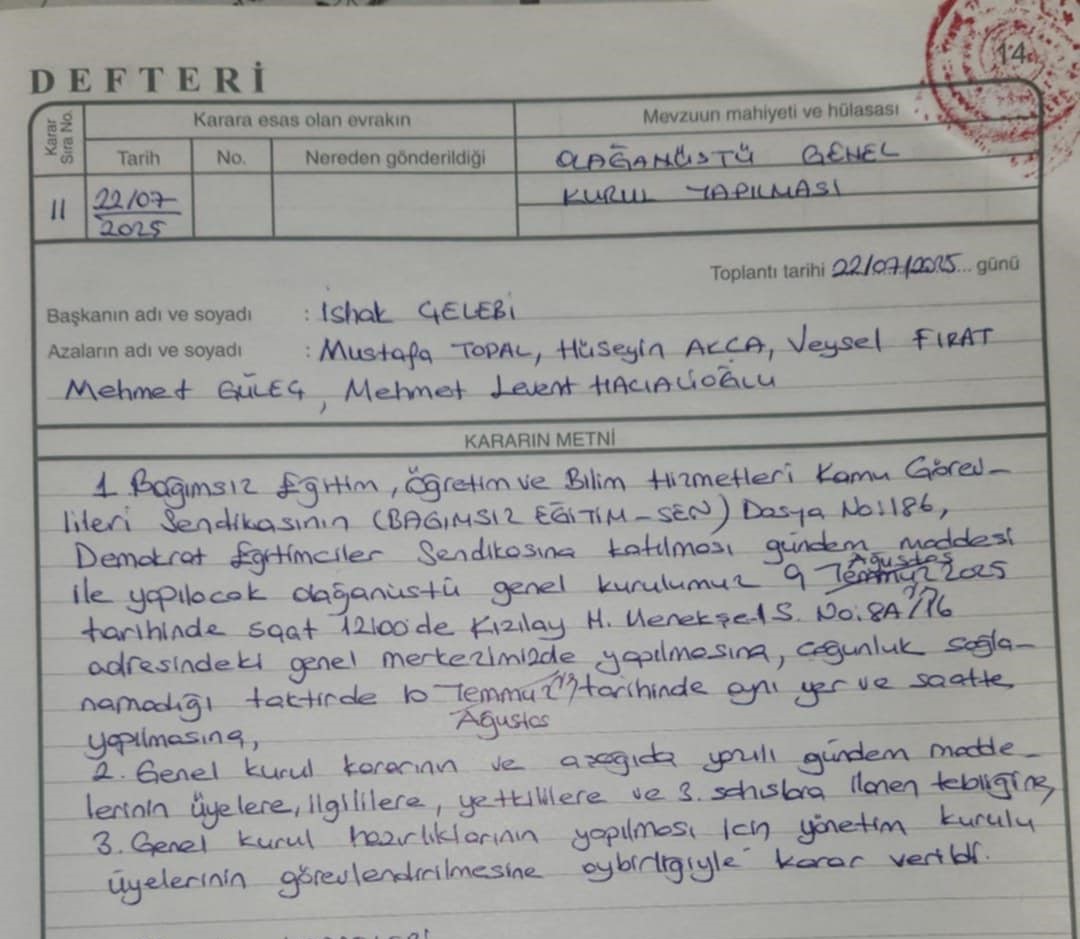 14
DEFTERİ
Karar Sıra No.
Karara esas olan evrakın
Mevzuun mahiyeti ve hülasası
Tarih No. Nereden gönderildiği
OLAĞANÜSTÜ GENEL
KURUL YAPILMASI
11 22/07
2025
Toplantı tarihi 22/07/2025... günü
Başkanın adı ve soyadı : İshak ÇELEBİ
Azaların adı ve soyadı : Mustafa TOPAL, Hüseyin AKÇA, Veysel FIRAT
Mehmet GÜLEÇ, Mehmet Levent HACIALİOĞLU
KARARIN METNİ
1 Bağımsız Eğitim, Öğretim ve Bilim Hizmetleri Kamu Görev-
lileri Sendikasının (BAĞIMSIZ EĞİTİM-SEN) Dosya No:1186,
Demokrat Eğitimciler Sendikasına katılması gündem maddesi
Ağustos
ile yapılacak olağanüstü genel kurulumuz 9 Temmuz 2025
tarihinde saat 12:00'de Kızılay M. Menekşe-1 S. No:8A/76
adresindeki genel merkezimizde yapılmasına, çoğunluk sağla-
namadığı taktirde 10 Temmuz tarihinde aynı yer ve saatte
Ağustos
yapılmasına,
2. Genel kurul kararının ve aşağıda yazılı gündem madde-
lerinin üyelere, ilgililere, yetkililere ve 3. şahıslara ilanen tebliğine,
3. Genel kurul hazırlıklarının yapılması için yönetim kurulu
üyelerinin görevlendirilmesine oybirliğiyle karar verildi.